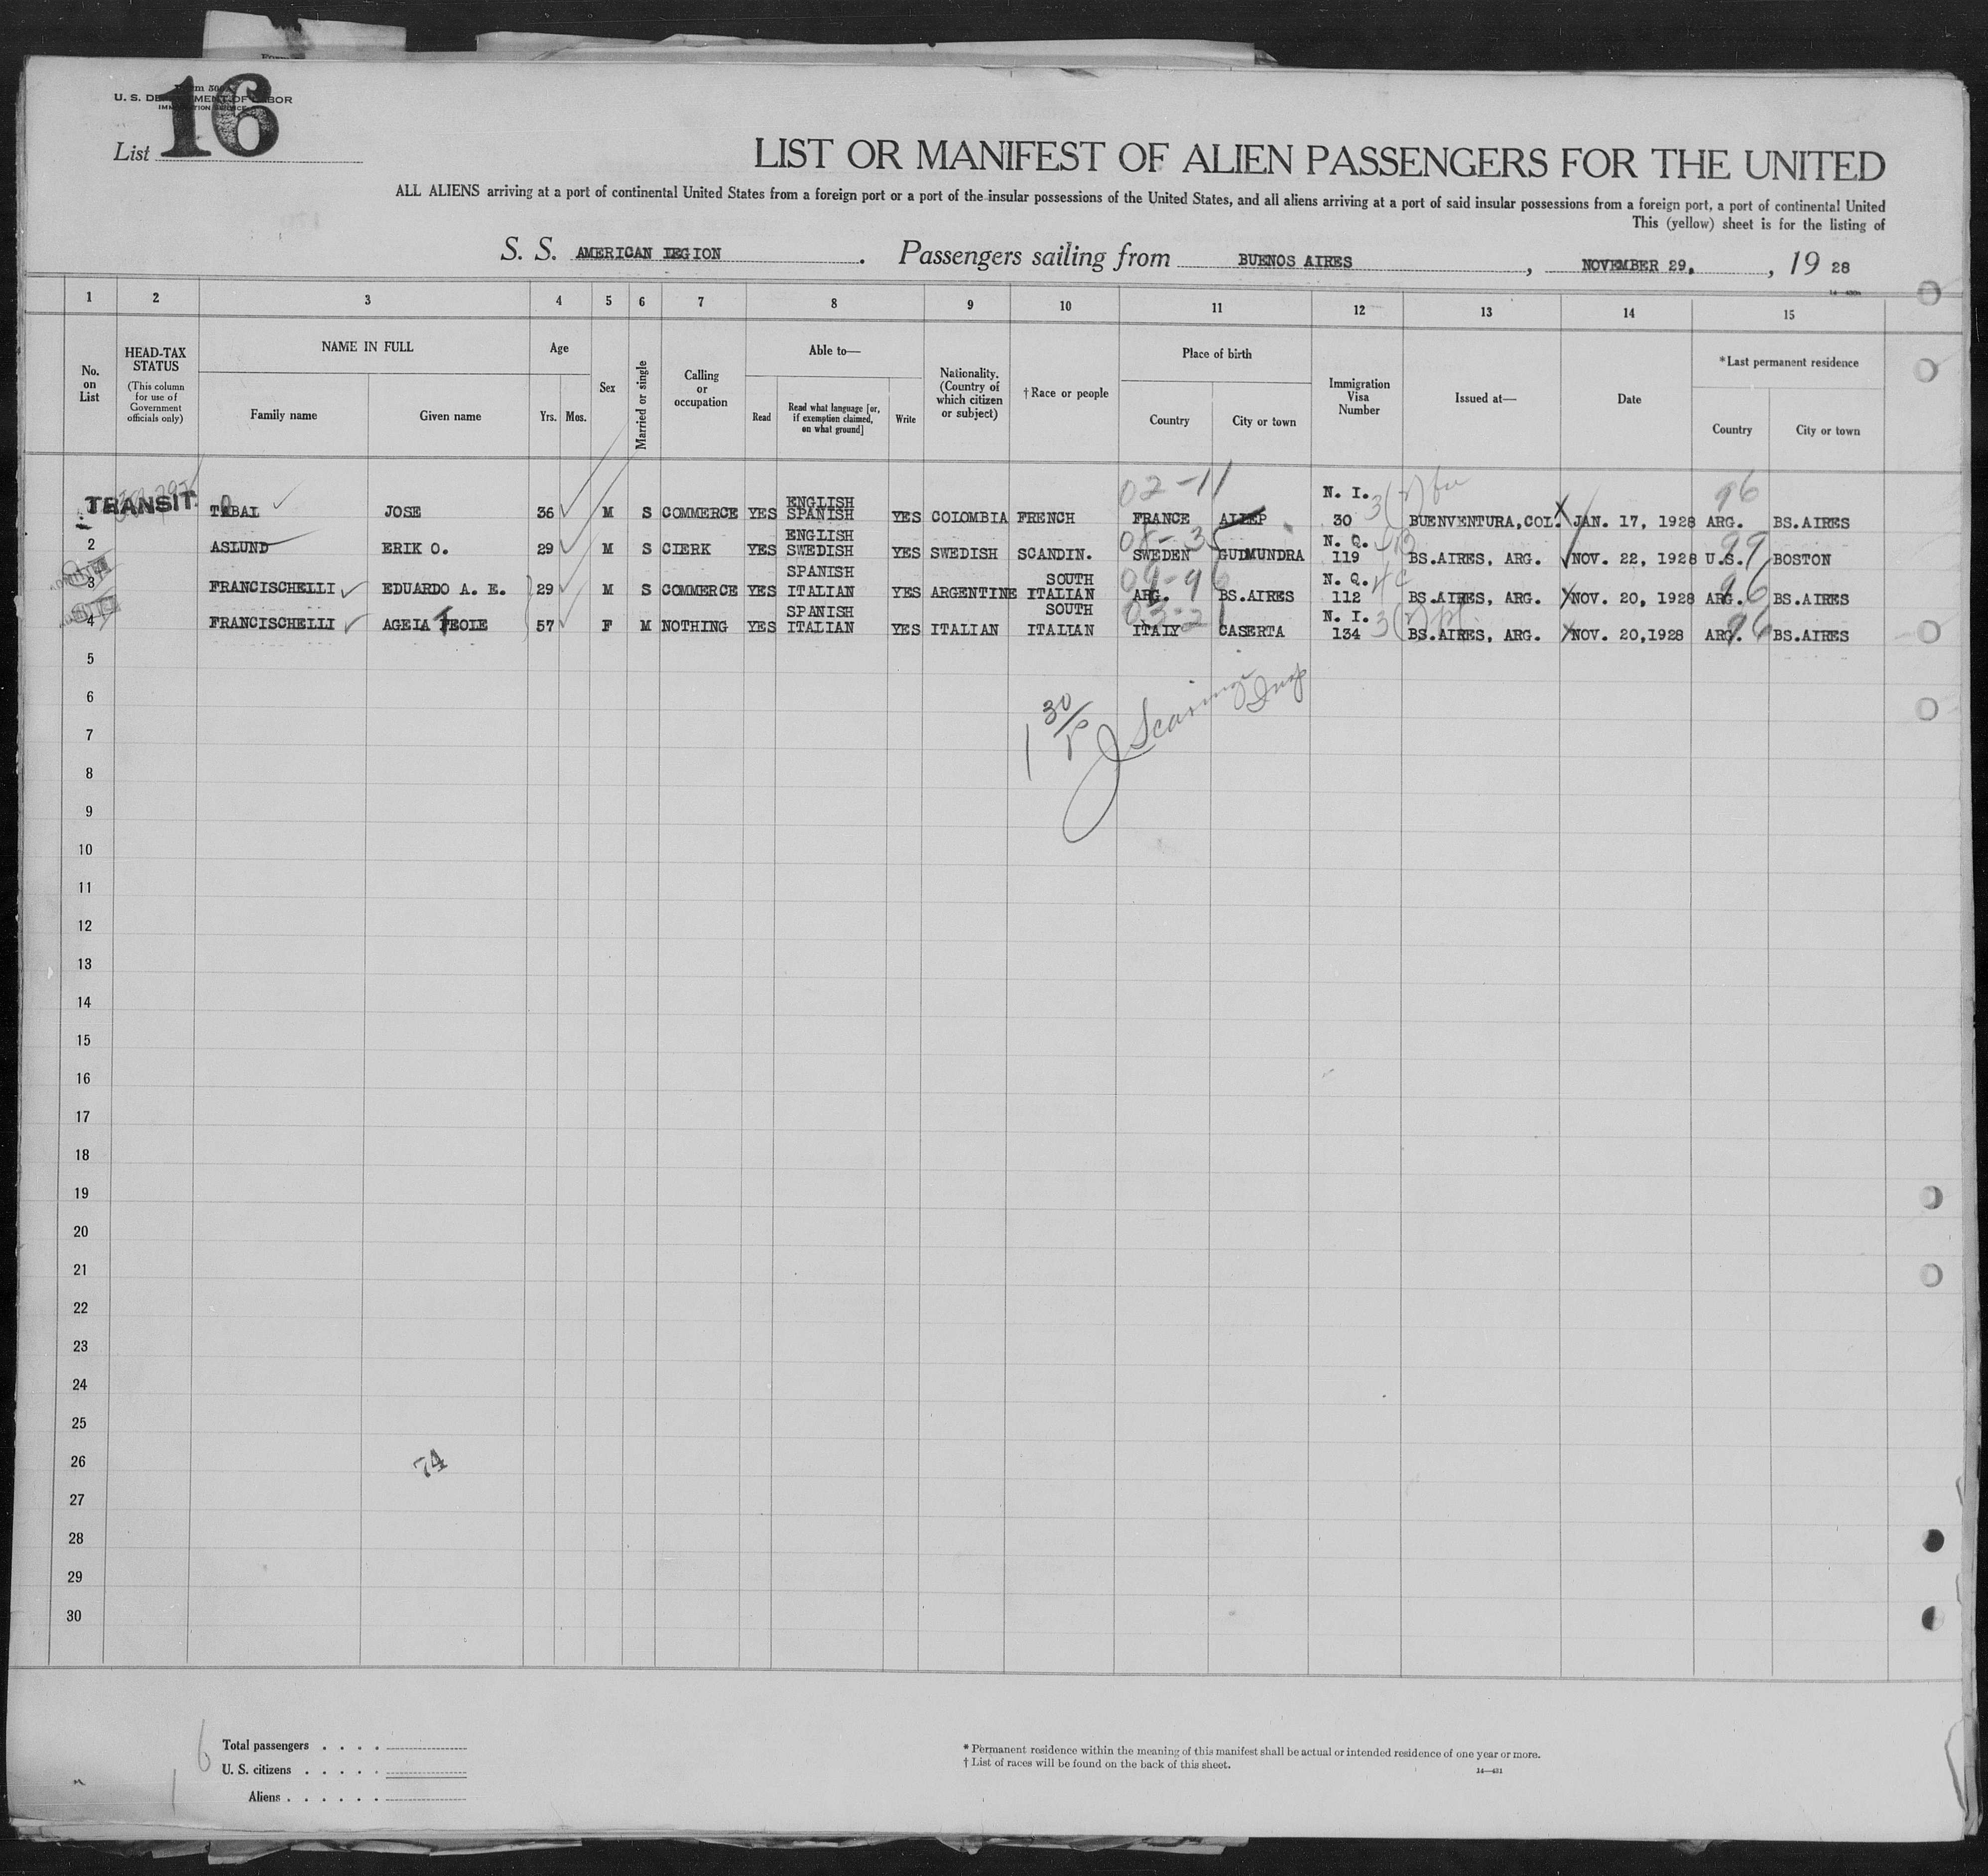 Form 500
U. S. DEPARTMENT OF LABOR
IMMIGRATION SERVICE
List 16
LIST OR MANIFEST OF ALIEN PASSENGERS FOR THE UNITED
ALL ALIENS arriving at a port of continental United States from a foreign port or a port of the insular possessions of the United States, and all aliens arriving at a port of said insular possessions from a foreign port, a port of continental United
This (yellow) sheet is for the listing of
S. S. AMERICAN LEGION . Passengers sailing from BUENOS AIRES , NOVEMBER 29, , 19 28
1 2 3 4 5 6 7 8 9 10 11 12 13 14 15
No. on List
HEAD-TAX STATUS (This column for use of Government officials only)
NAME IN FULL
Family name Given name
Age
Yrs. Mos.
Sex
Married or single
Calling or occupation
Able to—
Read Read what language [or, if exemption claimed, on what ground] Write
Nationality. (Country of which citizen or subject)
† Race or people
Place of birth
Country City or town
Immigration Visa Number
Issued at—
Date
*Last permanent residence
Country City or town
02-11 96
TRANSIT TABAL JOSE 36 M S COMMERCE YES ENGLISH SPANISH YES COLOMBIA FRENCH FRANCE ALLEP N. I. 30 BUENVENTURA,COL. JAN. 17, 1928 ARG. BS.AIRES
2 ASLUND ERIK O. 29 M S CLERK YES ENGLISH SWEDISH YES SWEDISH SCANDIN. SWEDEN GUDMUNDRA N. Q. 119 BS.AIRES, ARG. NOV. 22, 1928 U.S. 99 BOSTON
3 FRANCISCHELLI EDUARDO A. E. 29 M S COMMERCE YES SPANISH ITALIAN YES ARGENTINE SOUTH ITALIAN ARG. BS.AIRES N. Q. 112 BS.AIRES, ARG. NOV. 20, 1928 ARG. 96 BS.AIRES
4 FRANCISCHELLI AGELA FEOLE 57 F M NOTHING YES SPANISH ITALIAN YES ITALIAN SOUTH ITALIAN ITALY CASERTA N. I. 134 BS.AIRES, ARG. NOV. 20,1928 ARG. 96 BS.AIRES
5
6
7
8
9
10
11
12
13
14
15
16
17
18
19
20
21
22
23
24
25
26 74
27
28
29
30
Total passengers . . . .
U. S. citizens . . . . .
Aliens . . . . . .
* Permanent residence within the meaning of this manifest shall be actual or intended residence of one year or more.
† List of races will be found on the back of this sheet.
14—431